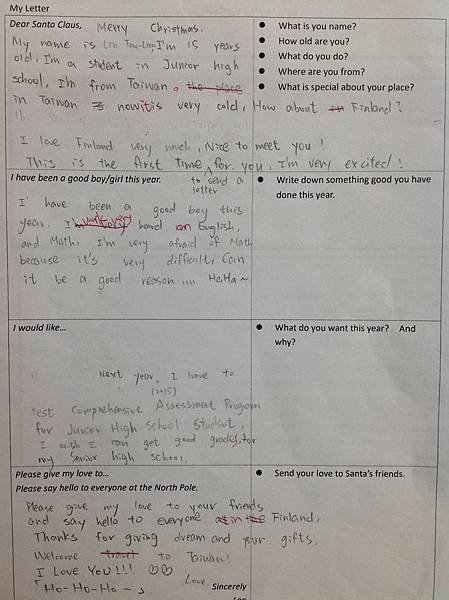 My Letter
Dear Santa Claus, Merry Christmas.
My name is Lin Tzu-
I'm 15 years
old, I'm a student in Junior high
school, I'm from Taiwan, the place
in Taiwan now it is very cold, How about in Finland?
I love Finland very much, Nice to meet you!
This is the first time for you, I'm very excited!
to send a
letter
● What is you name?
● How old are you?
● What do you do?
● Where are you from?
● What is special about your place?
I have been a good boy/girl this year.
I' have been a good boy this
year. I'm work very hard on English,
and Math, I'm very afraid of Math
because it's very difficult, Can
it be a good reason .... HaHa~
● Write down something good you have
done this year.
I would like...
Next year, I have to
(2015)
test Comprehensive Assessment Program
for Junior High School Student,
I wish I can get good grades, for
my senior high school.
● What do you want this year? And
why?
Please give my love to...
Please say hello to everyone at the North Pole.
Please give my love to your friends
and say hello to everyone in the Finland,
Thanks for giving dream and your gifts.
Welcome travel to Taiwan!
I Love YOU!!! ♡♡
「Ho-Ho-Ho~」
Love.
Sincerely
● Send your love to Santa's friends.